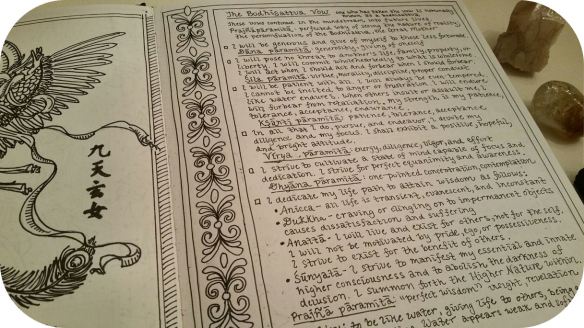 九天玄女
The Bodhisattva Vow one who has taken the vow is nominally known as a bodhisattva
These vows continue in the mindstream into future lives.
Prajñāpāramitā - perfected way of seeing the nature of reality;
the personification of the Bodhisattva, the Great Mother
I will be generous and give of myself to those less fortunate.
Dāna pāramitā: generosity, giving of oneself
I will pose no threat to another's life, family, property, or
liberty. I will commit wholeheartedly to what is wholesome.
I will act when I should act and forbear when I should forbear.
Śīla pāramitā: virtue, morality, discipline, proper conduct
I will be patient with all. I will always be even tempered.
I cannot be incited to anger or frustration. I will endure
like water endures. When others insult or assault me, I
will forbear from retaliation. My strength is my patience,
tolerance, acceptance, endurance.
Kṣānti pāramitā: patience, tolerance, acceptance
In all that I do, pursue, and endeavor, I abide my
diligence and my focus. I shall exhibit a positive, hopeful,
and bright attitude.
Vīrya pāramitā: energy, diligence, vigor, and effort
I strive to cultivate a state of mind capable of focus and
dedication. I strive for perfect equanimity and awareness.
Dhyāna pāramitā: one-pointed concentration, contemplation
I dedicate my life path to attain wisdom as follows:
• Anicca - all life is transient, evanescent, and inconstant
• Dukkha - craving or clinging on to impermanent objects
causes dissatisfaction and suffering
• Anattā - I will live and exist for others, not for the self.
I will not be motivated by pride, ego, or possessiveness.
I strive to exist for the benefit of others.
• Śūnyatā - I strive to manifest my essential and innate
higher consciousness and to abolish the darkness of
delusion. I summon forth the Higher Nature within.
Prajñā pāramitā: "perfect wisdom" insight, revelation
to be like water, giving life to others, being
Water appears weak and soft